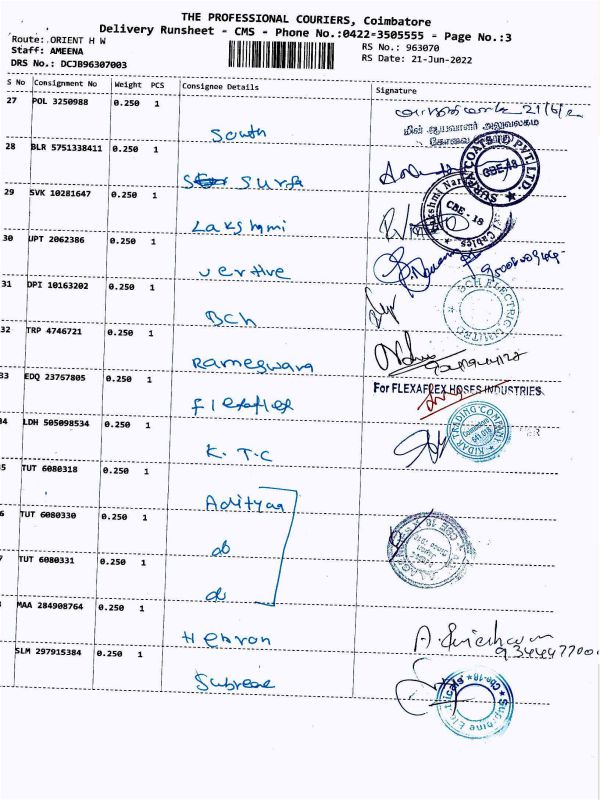 THE PROFESSIONAL COURIERS, Coimbatore
Delivery Runsheet - CMS - Phone No.:0422-3505555 - Page No.:3
Route:.ORIENT H W
RS No.: 963070
Staff: AMEENA
RS Date: 21-Jun-2022
DRS No.: DCJB96307003
S No Consignment No Weight PCS Consignee Details Signature
27 POL 3250988 0.250 1 South
21/6/2
மின் ஆய்வாளர் அலுவலகம்
கோவை
28 BLR 5751338411 0.250 1 Surfa
SURFA COATS PVT LTD. CBE-18
29 SVK 10281647 0.250 1 Lakshmi
Lakshmi Cables CBE - 18
30 UPT 2062386 0.250 1 vertive
31 DPI 10163202 0.250 1 BCh
BCH ELECTRIC LIMITED
32 TRP 4746721 0.250 1 Rameswara
33 EDQ 23767805 0.250 1 Flexaflex
For FLEXAFLEX HOSES INDUSTRIES
34 LDH 505098534 0.250 1 K. T. C
KIDAR TRADING COMPANY Coimbatore 641 018
5 TUT 6080318 0.250 1 Adityaa
6 TUT 6080330 0.250 1 do
7 TUT 6080331 0.250 1 do
MAA 284908764 0.250 1 Hebron
934447700
SLM 297915384 0.250 1 Subreme
Supreme Electricals CBE-18